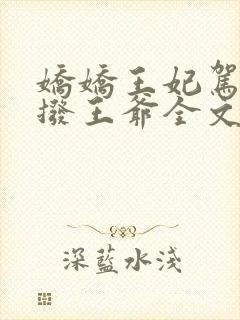 嬌嬌王妃駕
撥王爺全文
深藍水淺